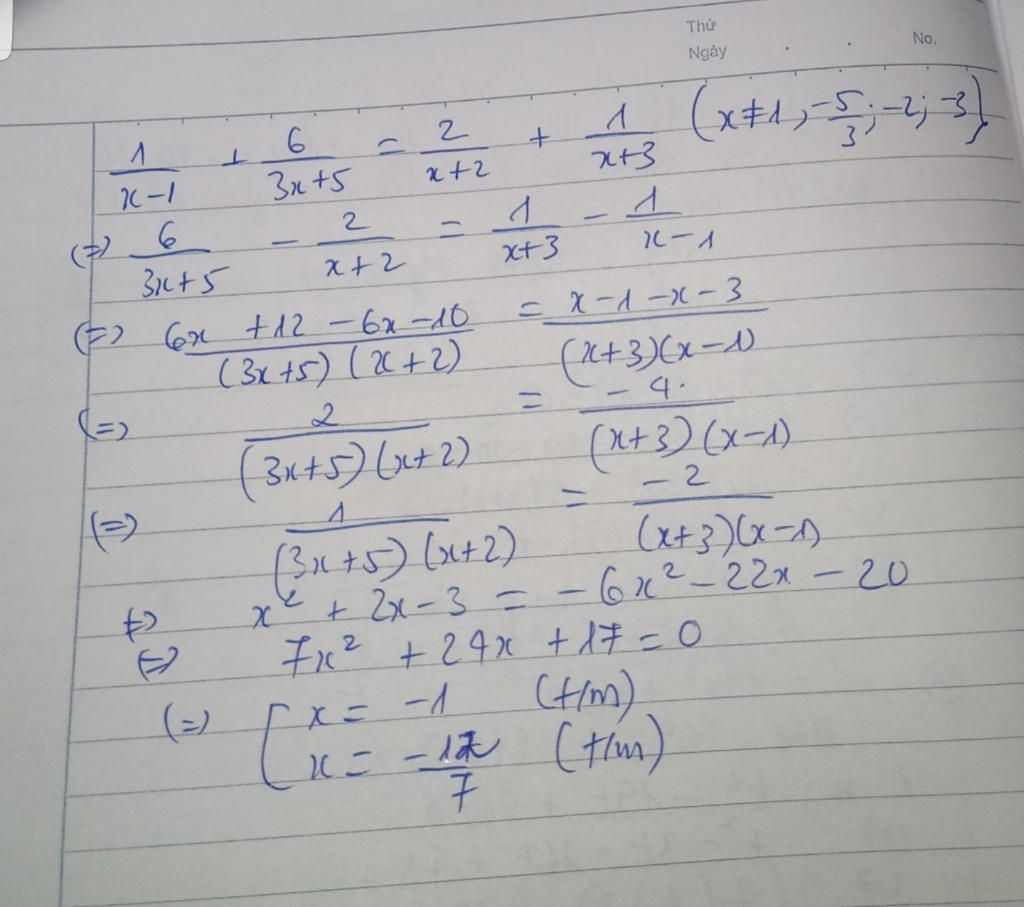 Thứ
Ngày . . No.
1/(x-1) + 6/(3x+5) = 2/(x+2) + 1/(x+3) (x≠1; -5/3; -2; -3)
(=) 6/(3x+5) - 2/(x+2) = 1/(x+3) - 1/(x-1)
(=) (6x +12 -6x -10)/((3x+5)(x+2)) = (x-1-x-3)/((x+3)(x-1))
(=) 2/((3x+5)(x+2)) = -4/((x+3)(x-1))
(=) 1/((3x+5)(x+2)) = -2/((x+3)(x-1))
(=) x² + 2x - 3 = -6x² - 22x - 20
(=) 7x² + 24x + 17 = 0
(=) [ x = -1 (t/m)
x = -17/7 (t/m)